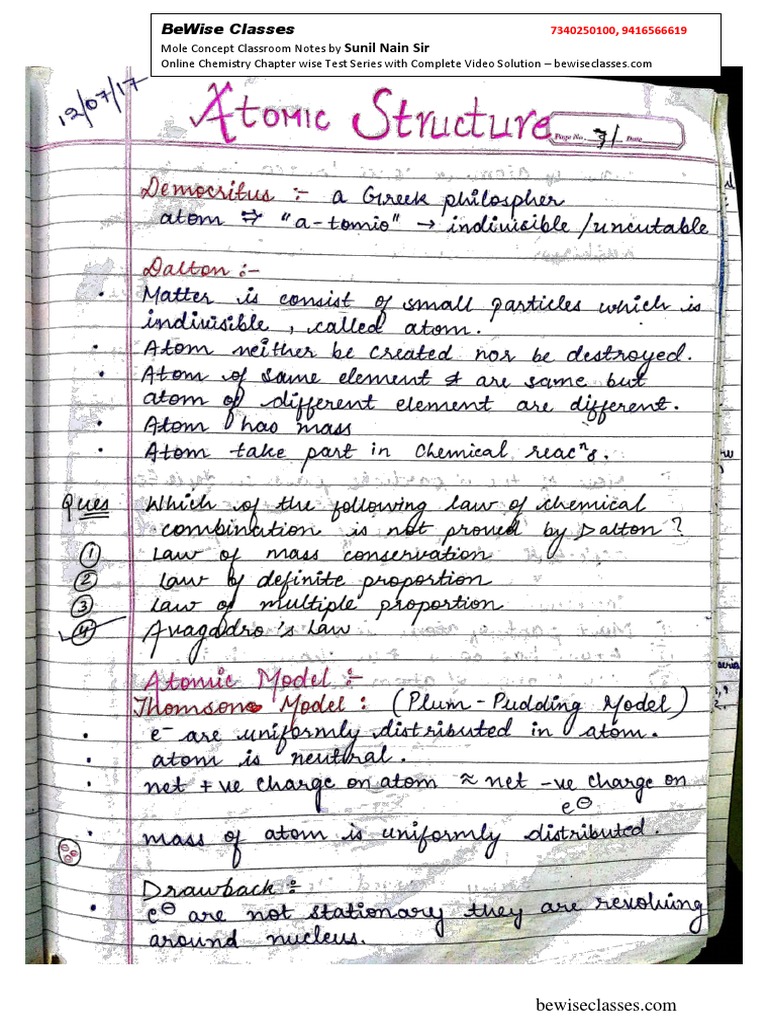 BeWise Classes 7340250100, 9416566619
Mole Concept Classroom Notes by Sunil Nain Sir
Online Chemistry Chapter wise Test Series with Complete Video Solution – bewiseclasses.com
12/07/17
Atomic Structure
Page No. 7/ Date
Democritus :- a Greek philospher
atom ⇒ "a-tomio" → indivisible /uncutable
Dalton :-
• Matter is consist of small particles which is
indivisible, called atom.
• Atom neither be created nor be destroyed.
• Atom of same element are same but
atom of different element are different.
• Atom has mass
• Atom take part in chemical reacⁿs.
Ques Which of the following law of chemical
combination is not proved by Dalton?
① Law of mass conservation
② Law of definite proportion
③ Law of multiple proportion
④ Avagadro's Law
Atomic Model :-
Thomson Model : (Plum-Pudding Model)
• e⁻ are uniformly distributed in atom.
• atom is neutral.
• net +ve charge on atom ≈ net -ve charge on
e⊖
• mass of atom is uniformly distributed.
Drawback :-
• e⊖ are not stationary they are revolving
around nucleus.
bewiseclasses.com